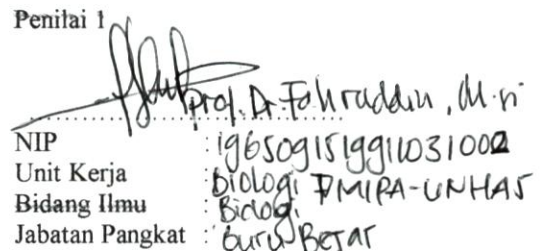 Penilai 1
Prof. Dr. Fahruddin, M.Si
NIP : 196509151991031002
Unit Kerja : Biologi FMIPA-UNHAS
Bidang Ilmu : Biologi
Jabatan Pangkat : Guru Besar